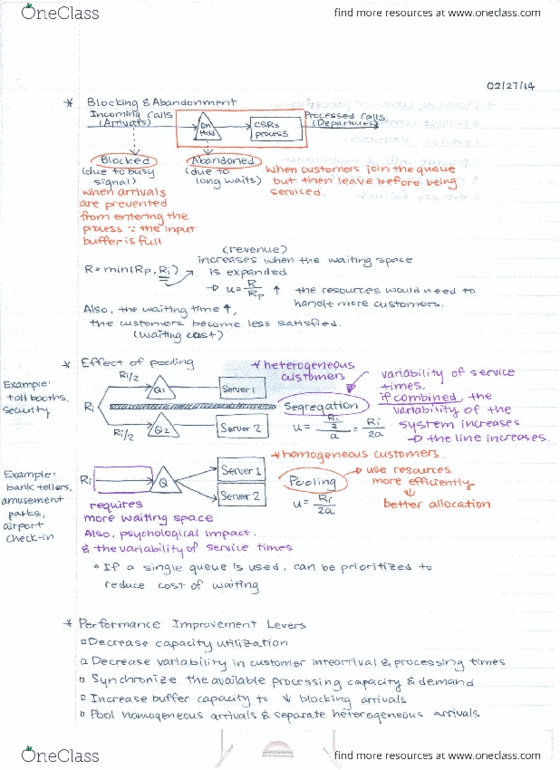 OneClass
find more resources at www.oneclass.com
02/27/14
* Blocking & Abandonment
Incoming Calls
(Arrivals)
On Hold
CSRs process
Processed Calls
(Departures)
Blocked
(due to busy signal)
when arrivals
are prevented
from entering the
process ∵ the input
buffer is full
Abandoned
(due to long waits)
when customers join the queue
but then leave before being
serviced.
R = min(Rp, Ri)
(revenue)
increases when the waiting space
is expanded
→ u = R/Rp ↑ the resources would need to
handle more customers.
Also, the waiting time ↑,
the customers become less satisfied.
(waiting cost)
* Effect of pooling
Example:
toll booths,
security
Ri
Ri/2
Q1
Server 1
Ri/2
Q2
Server 2
* heterogeneous
customers
Segregation
u = Ri/2 / a = Ri/2a
variability of service
times.
if combined, the
variability of the
system increases
→ the line increases.
Example:
bank tellers,
amusement
parks,
airport
check-in
Ri
Q
Server 1
Server 2
* homogeneous customers.
Pooling
u = Ri/2a
→ use resources
more efficiently.
better allocation
requires
more waiting space
Also, psychological impact.
& the variability of service times
If a single queue is used, can be prioritized to
reduce cost of waiting
* Performance Improvement Levers
Decrease capacity utilization
Decrease variability in customer interrival & processing times
Synchronize the available processing capacity & demand
Increase buffer capacity to ↓ blocking arrivals
Pool homogeneous arrivals & separate heterogeneous arrivals.
OneClass
find more resources at www.oneclass.com